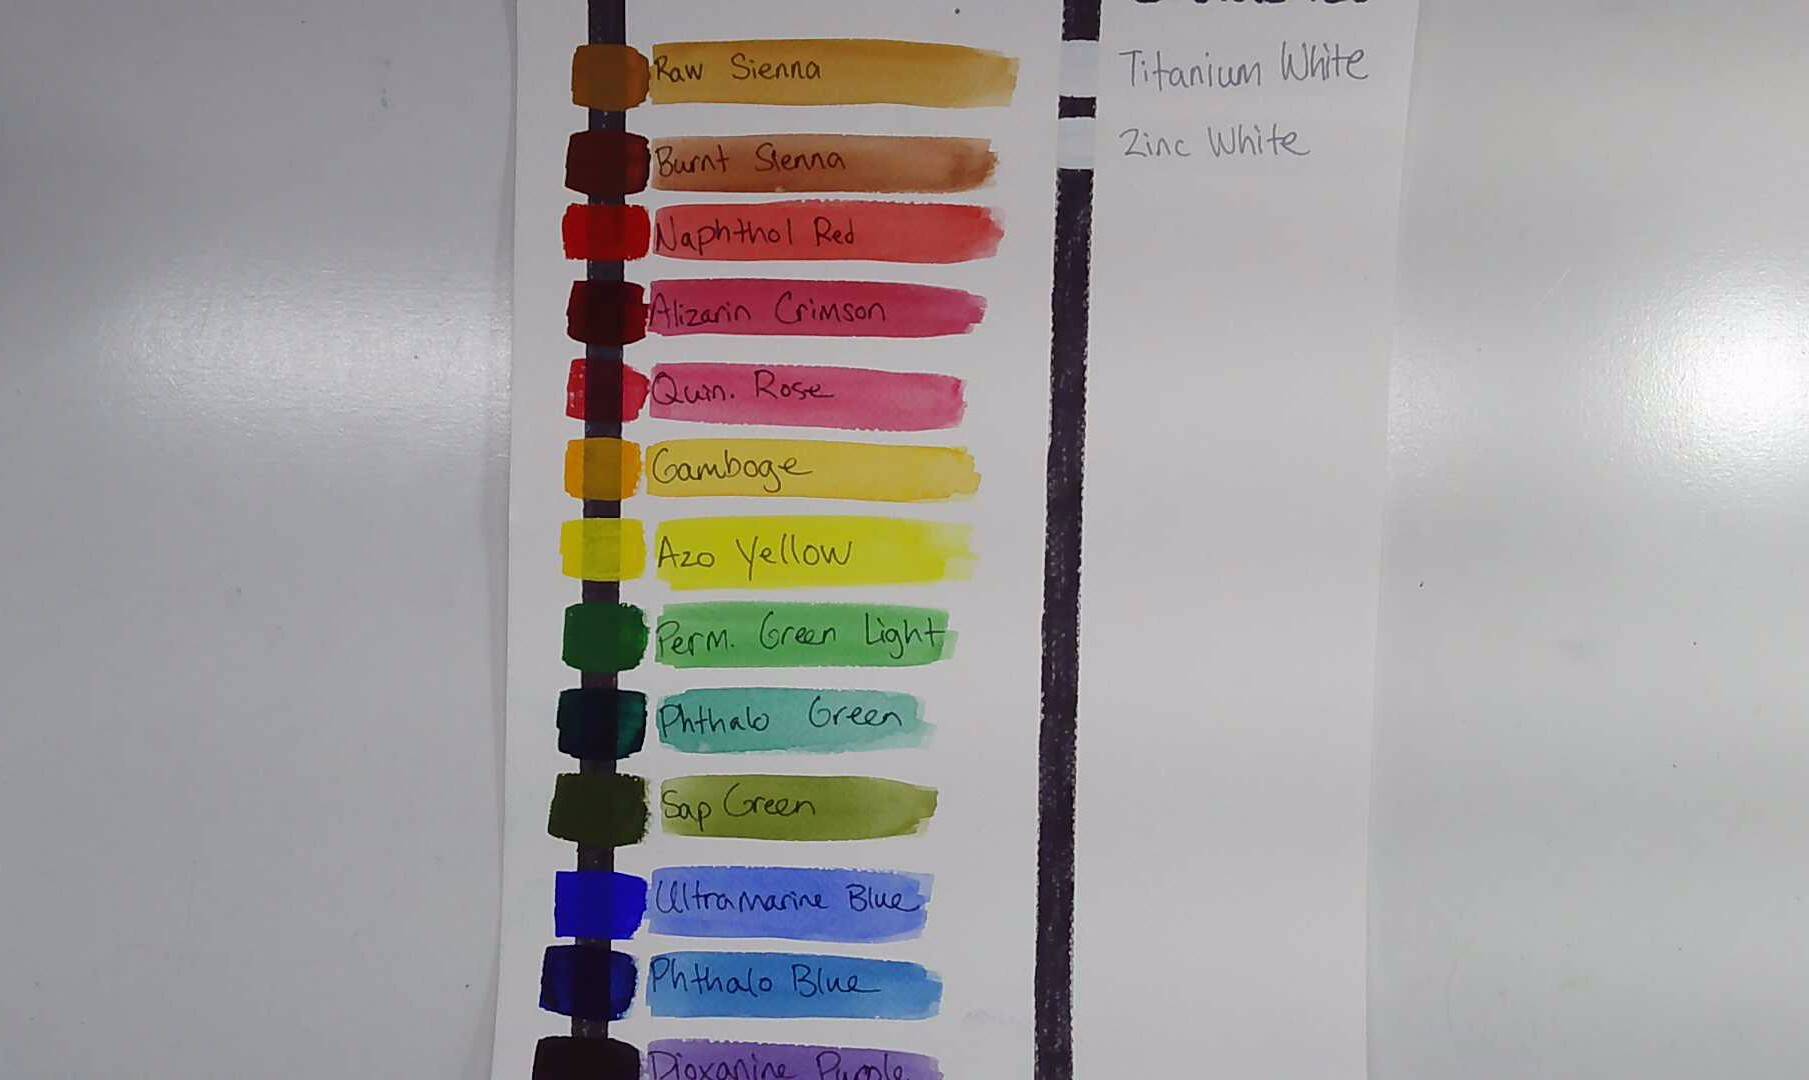 Raw Sienna
Burnt Sienna
Naphthol Red
Alizarin Crimson
Quin. Rose
Gamboge
Azo Yellow
Perm. Green Light
Phthalo Green
Sap Green
Ultramarine Blue
Phthalo Blue
Dioxanine Purple
Titanium White
Zinc White